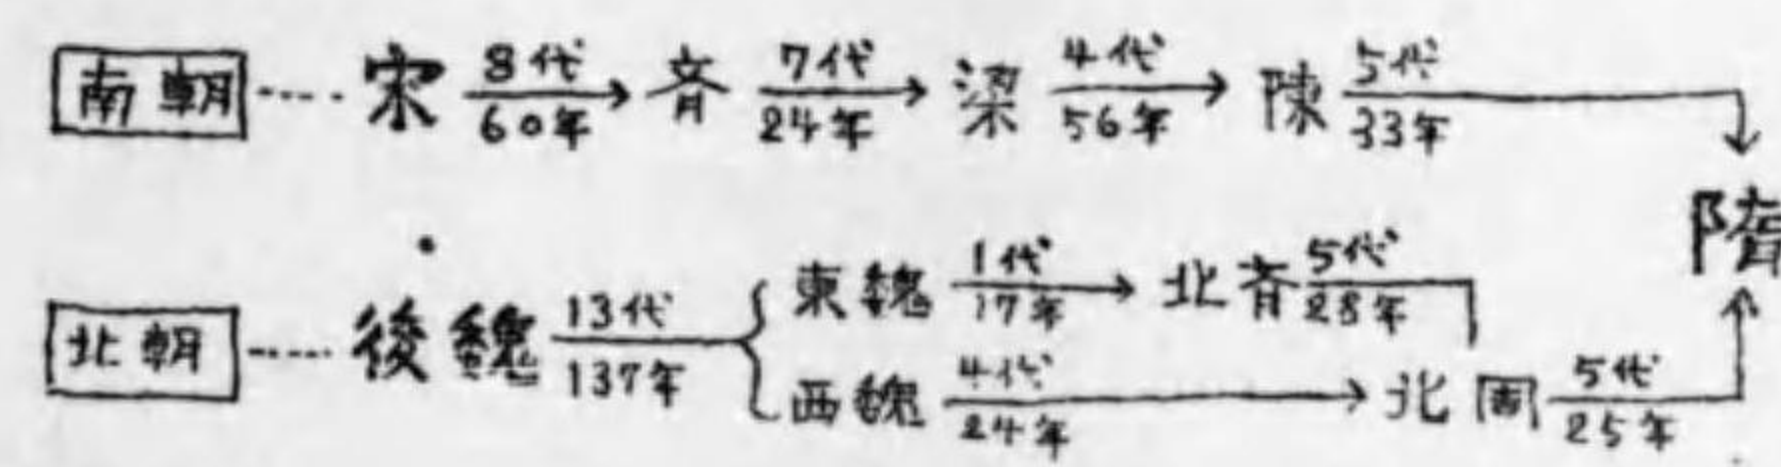 南朝 宋 8代 60年 斉 7代 24年 梁 4代 56年 陳 5代 33年
隋
北朝 後魏 13代 137年
東魏 1代 17年 北斉 5代 28年
西魏 4代 24年 北周 5代 25年